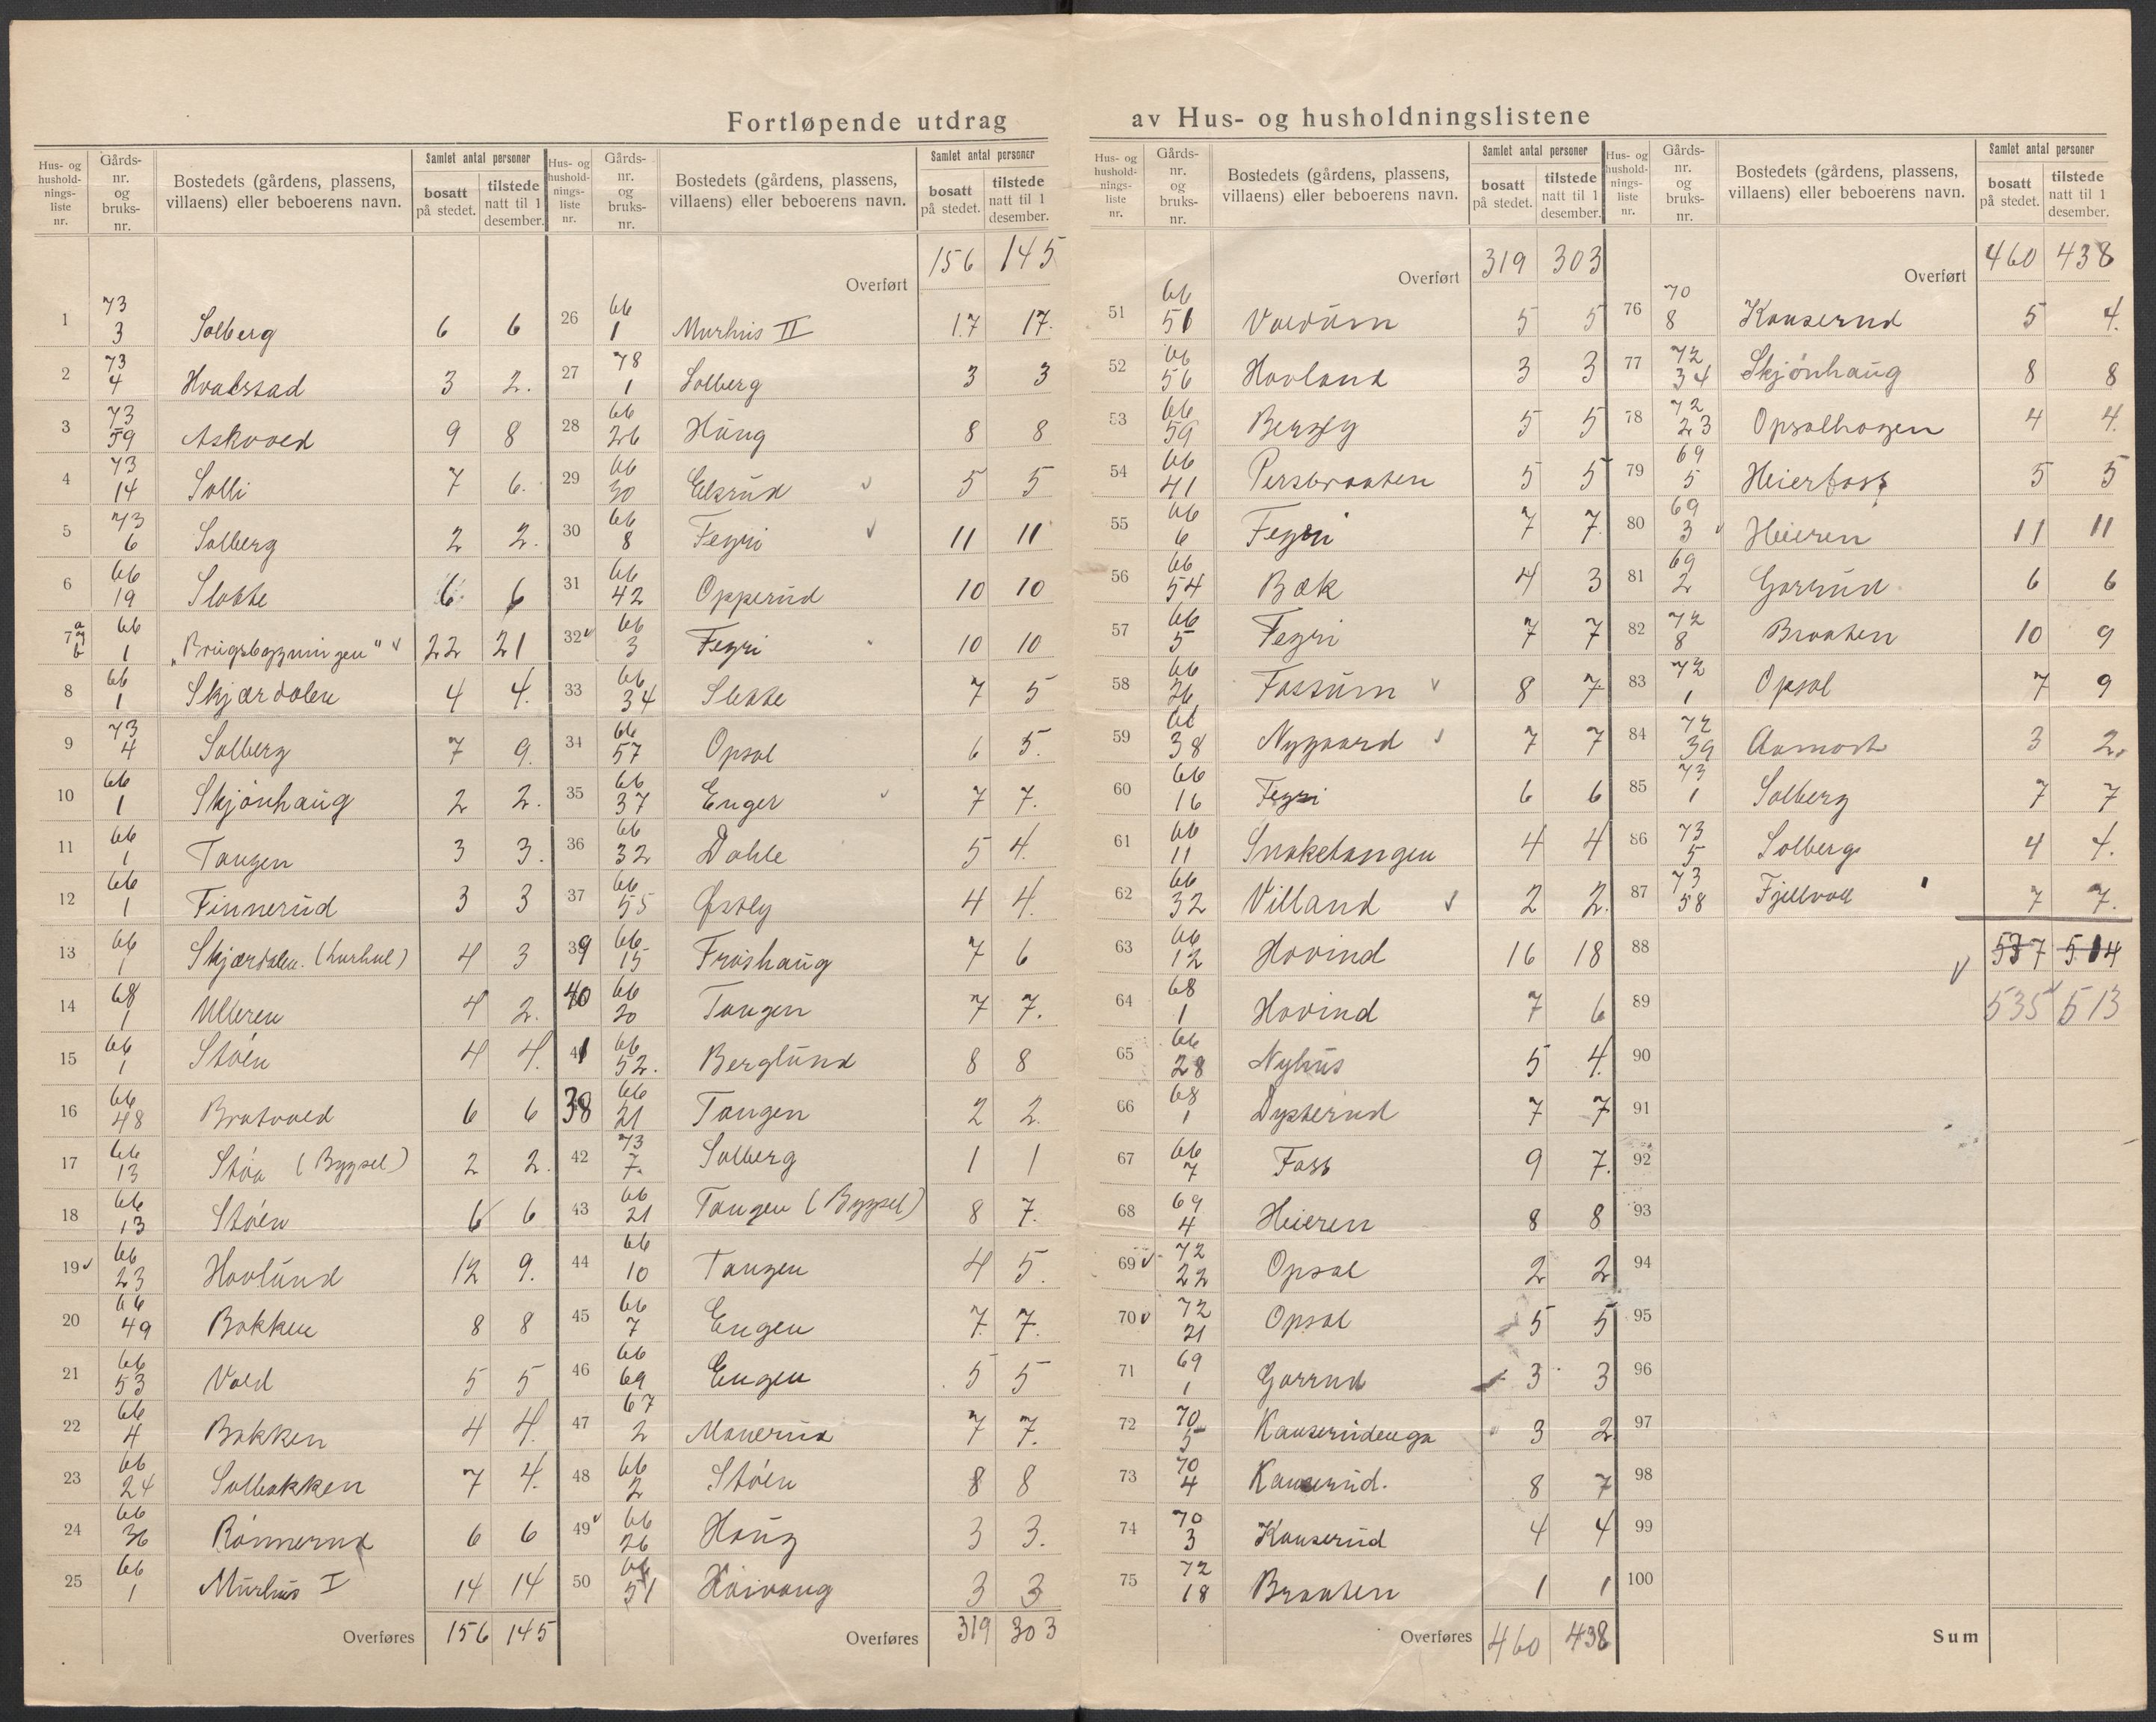 Fortløpende utdrag av Hus- og husholdningslistene
Hus- og husholdnings-liste nr. | Gårds-nr. og bruks-nr. | Bostedets (gårdens, plassens, villaens) eller beboerens navn. | Samlet antal personer | bosatt på stedet. | tilstede natt til 1 desember.
1 73/3 Solberg 6 6
2 73/4 Hvalstad 3 2.
3 73/59 Askvold 9 8
4 73/14 Solli 7 6.
5 73/6 Solberg 2 2.
6 66/19 Slokke 6 6
7 a b 66/1 „Brugsbygningen" 22 21
8 66/1 Skjærdalen 4 4.
9 73/4 Solberg 7 9.
10 66/1 Skjønhaug 2 2.
11 66/1 Tangen 3 3.
12 66/1 Finnerud 3 3
13 66/1 Skjærdalen. 4 3
14 68/1 Ulleren 4 2.
15 66/1 Støen 4 4.
16 66/48 Bratvold 6 6
17 66/13 Støa (Bygsel) 2 2.
18 66/13 Støen 6 6
19 66/23 Hovlund 12 9.
20 66/49 Bakken 8 8
21 66/53 Vold 5 5
22 66/4 Bakken 4 4.
23 66/24 Solbakken 7 4.
24 66/36 Rønnerud 6 6
25 66/1 Murhus I 14 14
Overføres 156 145
Hus- og husholdnings-liste nr. | Gårds-nr. og bruks-nr. | Bostedets (gårdens, plassens, villaens) eller beboerens navn. | Samlet antal personer | bosatt på stedet. | tilstede natt til 1 desember.
Overført 156 145
26 66/1 Murhus II 17 17.
27 78/1 Solberg 3 3
28 66/26 Haug 8 8
29 66/30 Elsrud 5 5
30 66/8 Fegri 11 11
31 66/42 Opperud 10 10
32 66/3 Fegri 10 10
33 66/34 Slette 7 5
34 66/57 Opsal 6 5.
35 66/37 Enger 7 7.
36 66/32 Dahle 5 4.
37 66/55 Østby 4 4.
39 66/15 Frøshaug 7 6
40 66/20 Tangen 7 7.
41 66/52. Berglund 8 8
38 66/21 Tangen 2 2.
42 73/7. Solberg 1 1
43 66/21 Tangen (Bygsel) 8 7.
44 66/10 Tangen 4 5.
45 66/7 Engen 7. 7.
46 66/69 Engen 5 5
47 67/2 Monerud 7 7.
48 66/2 Støen 8 8
49 66/26 Haug 3 3.
50 66/51 Høivang 3 3
Overføres 319 303
Hus- og husholdnings-liste nr. | Gårds-nr. og bruks-nr. | Bostedets (gårdens, plassens, villaens) eller beboerens navn. | Samlet antal personer | bosatt på stedet. | tilstede natt til 1 desember.
Overført 319 303
51 66/50 Voldum 5 5
52 66/56 Hovland 3 3
53 66/59 Bergly 5 5
54 66/41 Persbraaten 5 5
55 66/6 Fegri 7 7.
56 66/54 Bæk 4 3
57 66/5 Fegri 7 7
58 66/26 Fossum 8 7
59 66/38 Nygaard 7 7
60 66/16 Fegri 6 6
61 66/11 Snaketangen 4 4
62 66/32 Villand 2 2.
63 66/12 Hovind 16 18
64 68/1 Hovind 7 6
65 66/28 Nyhus 5 4.
66 68/1 Dysterud 7 7
67 66/7 Foss 9 7.
68 69/4 Heieren 8 8
69 72/22 Opsal 2 2
70 72/21 Opsal 5 5
71 69/1 Garrud 3 3
72 70/5 Kauserudenga 3 2
73 70/4 Kauserud. 8 7
74 70/3 Kauserud 4 4
75 72/18 Braaten 1 1
Overføres 460 438
Hus- og husholdnings-liste nr. | Gårds-nr. og bruks-nr. | Bostedets (gårdens, plassens, villaens) eller beboerens navn. | Samlet antal personer | bosatt på stedet. | tilstede natt til 1 desember.
Overført 460 438
76 70/8 Kauserud 5 4.
77 72/34 Skjønhaug 8 8
78 72/23 Opsalhagen 4 4.
79 69/5 Heierfoss 5 5
80 69/3 Heieren 11 11
81 69/2 Garrud 6 6
82 72/8 Braaten 10 9
83 72/1 Opsal 7 9
84 72/39 Aamodt 3 2.
85 73/1 Solberg 7 7
86 73/5 Solberg 4 4.
87 73/58 Fjellvoll 7 7.
88 537 514
89 535 513
90
91
92
93
94
95
96
97
98
99
100
Sum